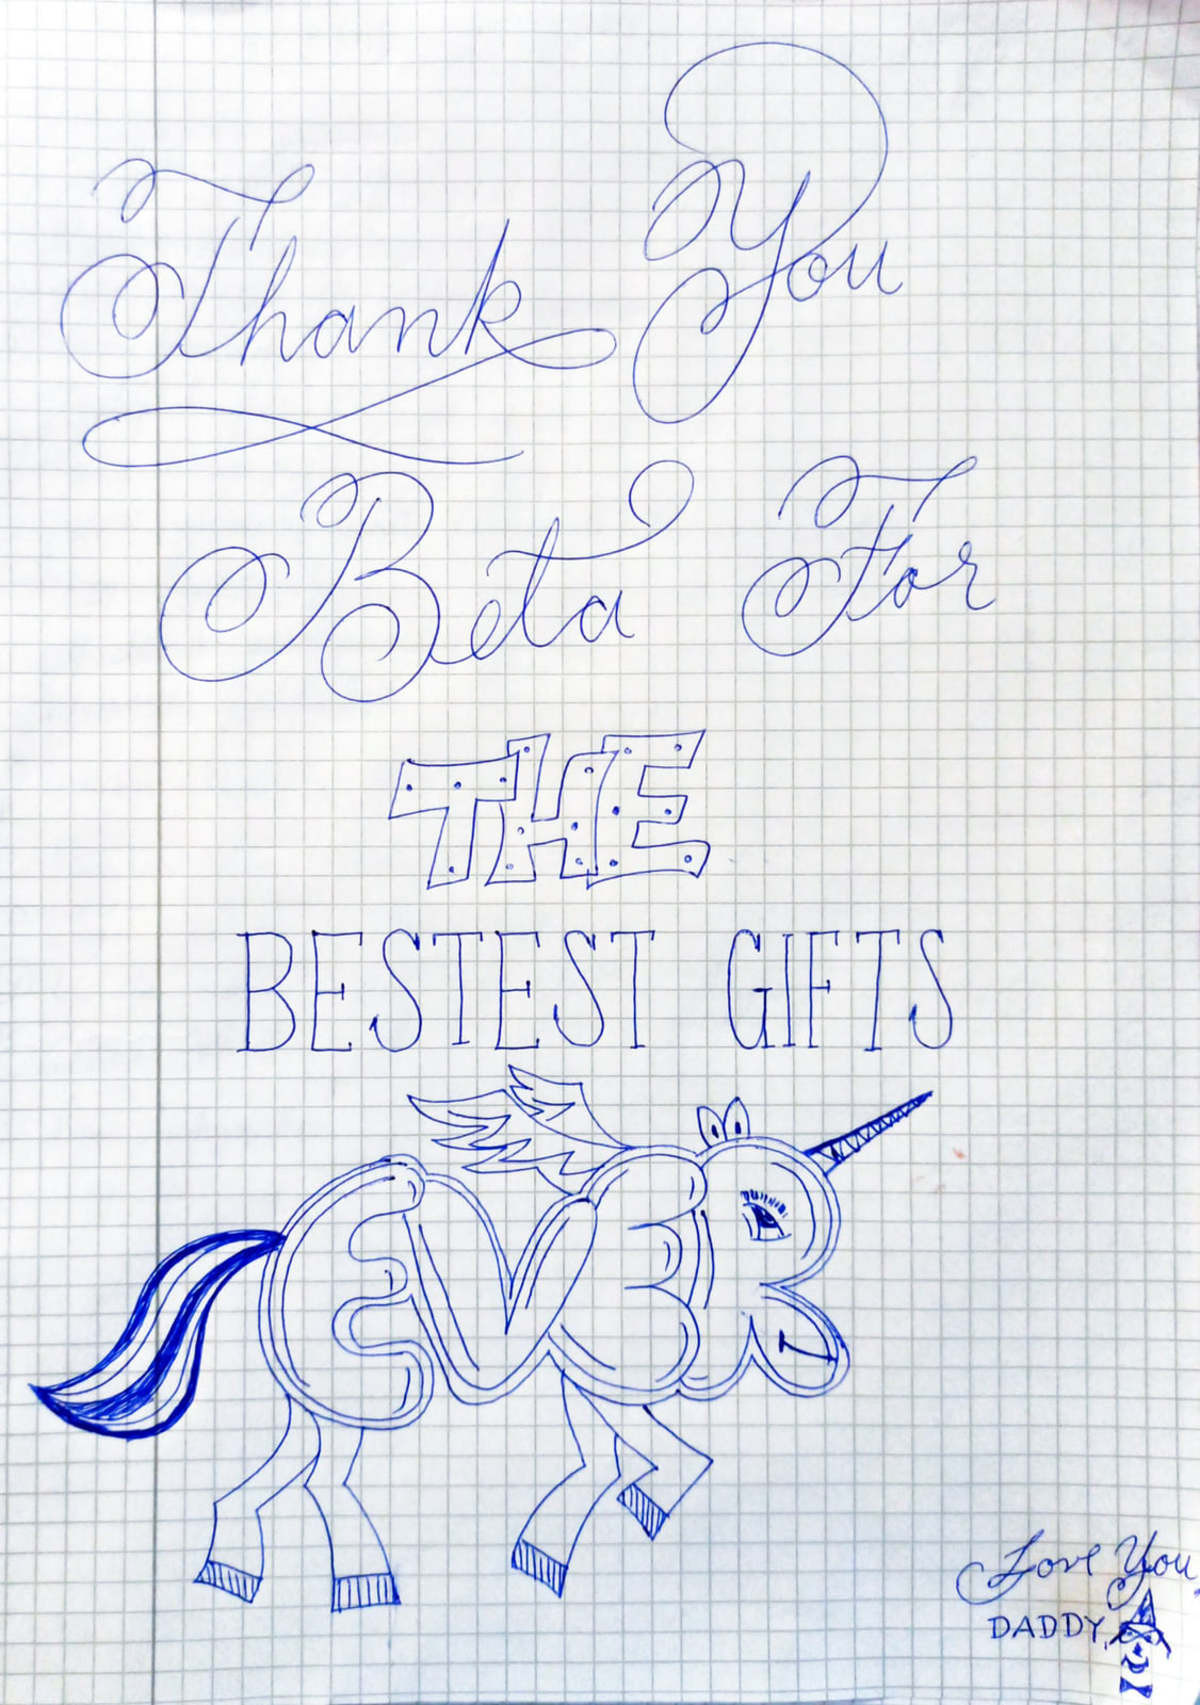 Thank You
Beta For
THE
BESTEST GIFTS
EVER
Love You
DADDY,